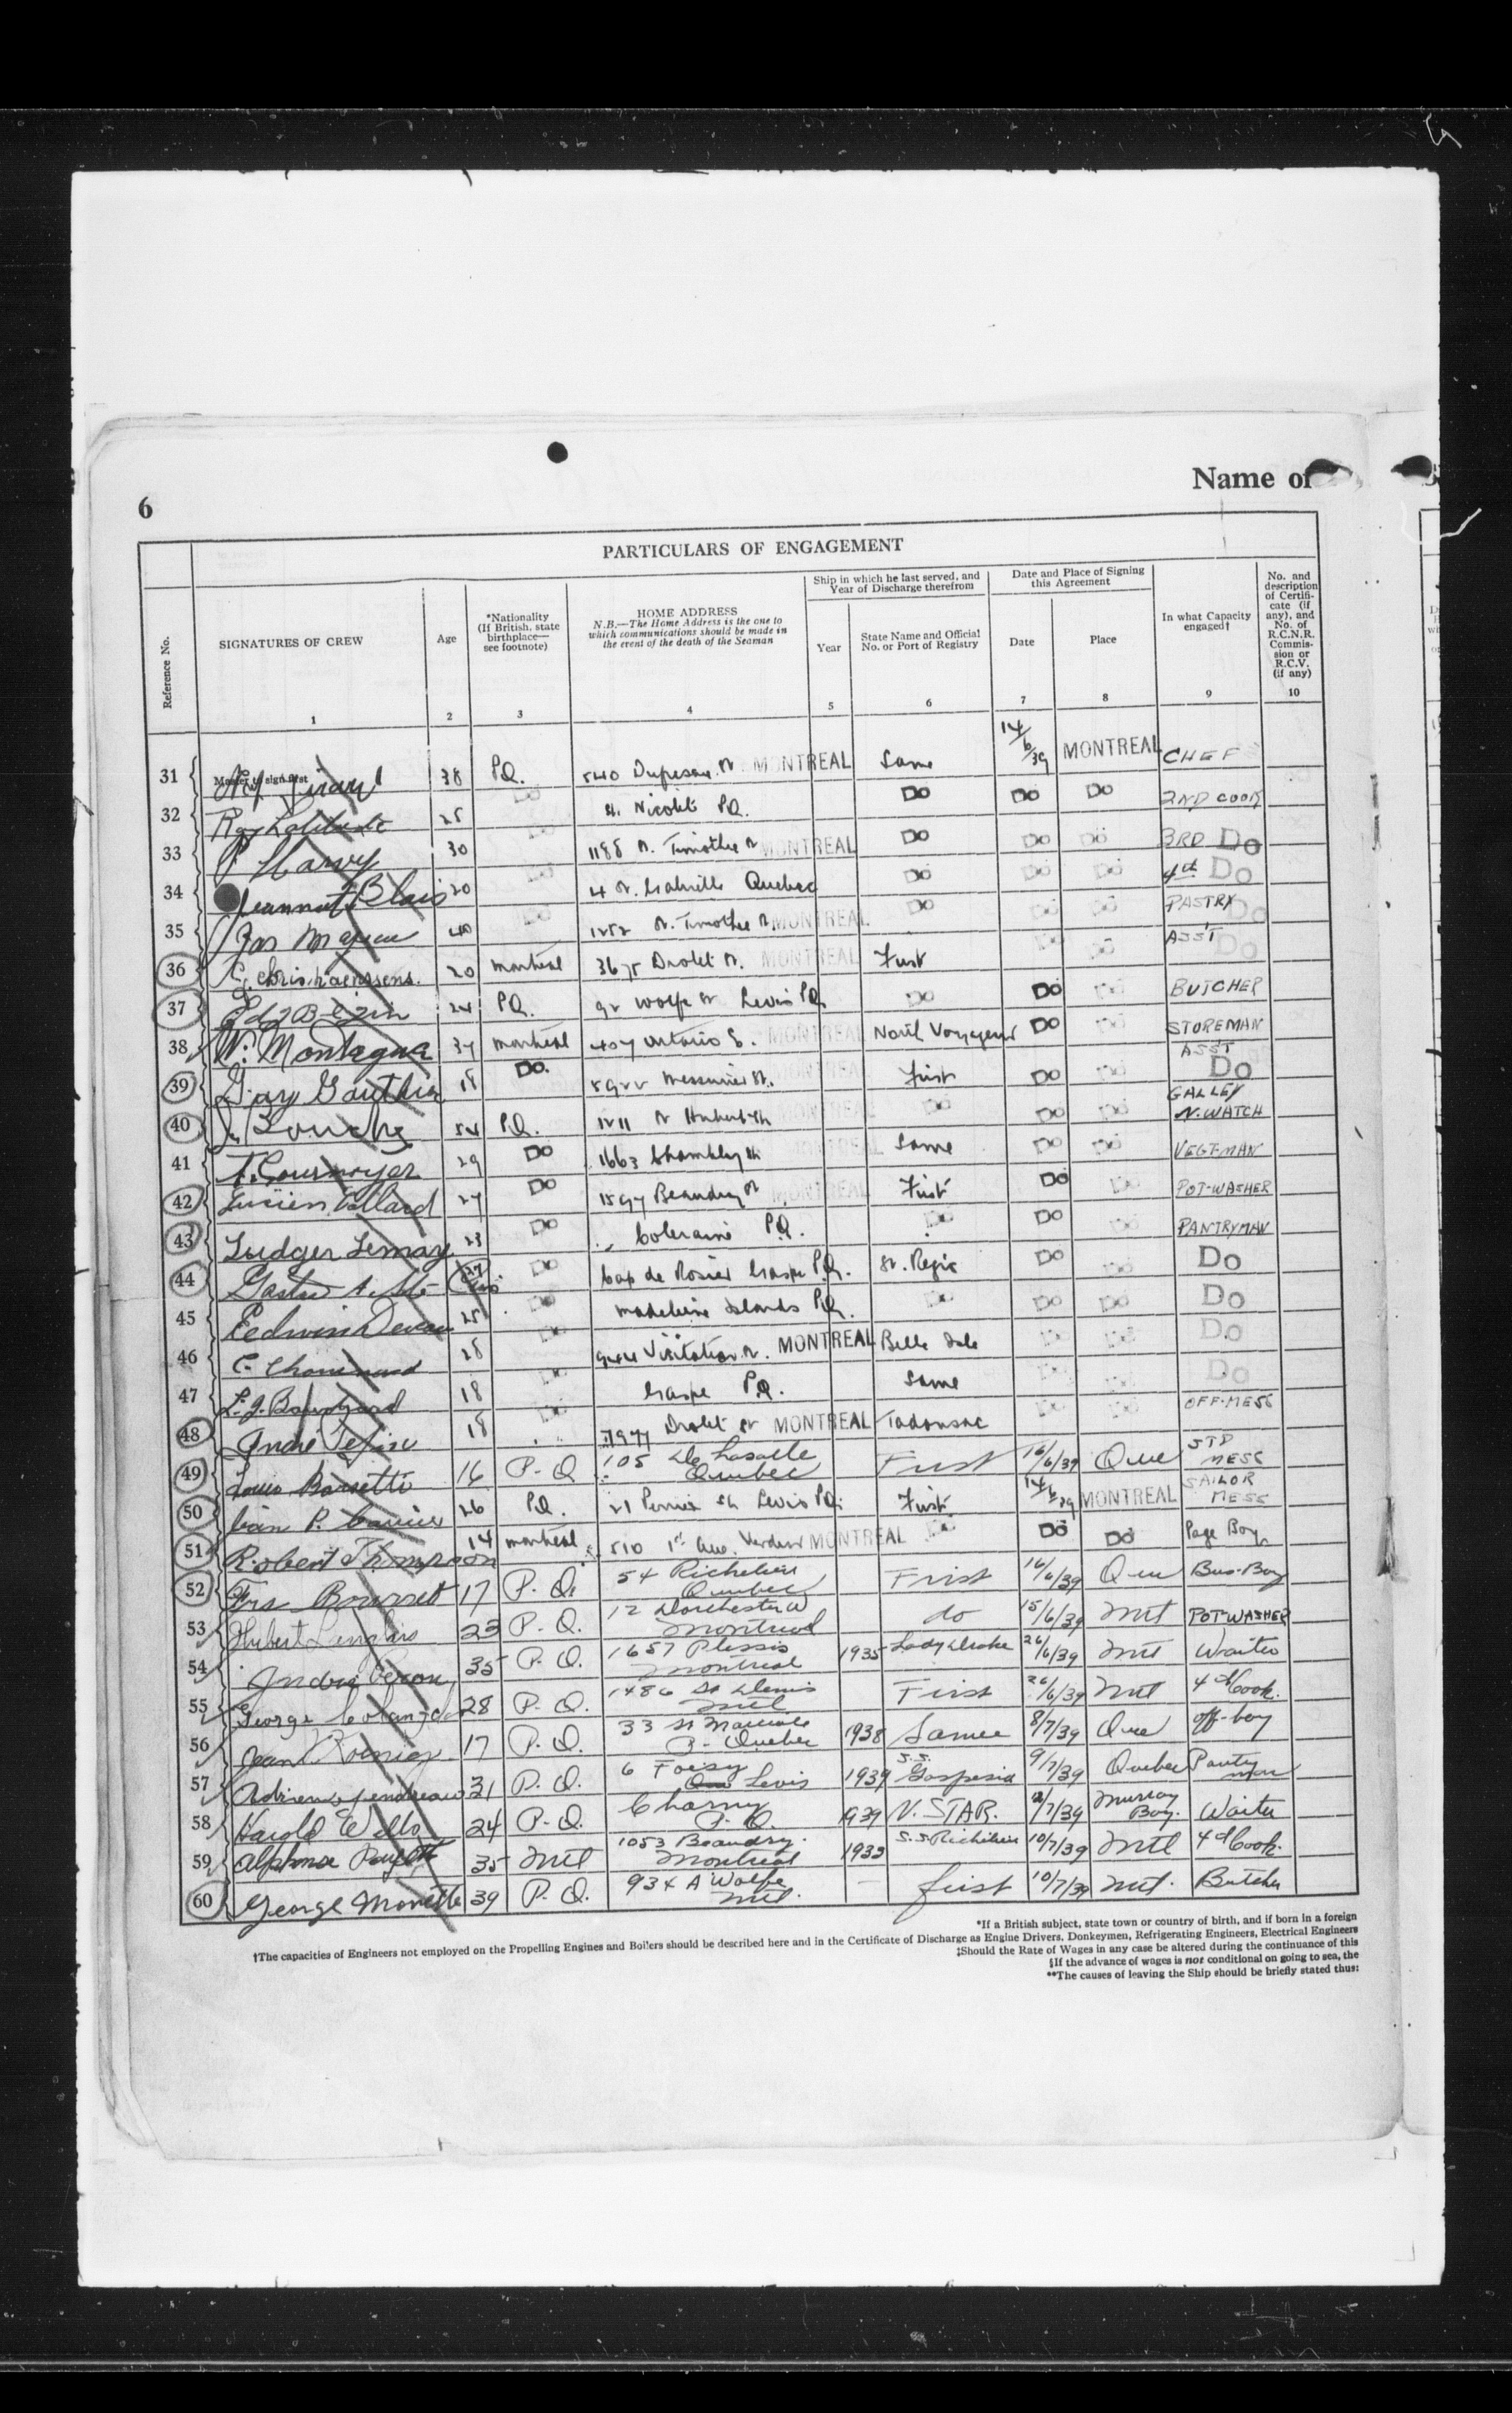 6
Name of
PARTICULARS OF ENGAGEMENT
Reference No.
SIGNATURES OF CREW
Age
*Nationality
(If British, state
birthplace—
see footnote)
HOME ADDRESS
N.B.—The Home Address is the one to
which communications should be made in
the event of the death of the Seaman
Ship in which he last served, and
Year of Discharge therefrom
Year
State Name and Official
No. or Port of Registry
Date and Place of Signing
this Agreement
Date
Place
In what Capacity
engaged†
No. and
description
of Certifi-
cate (if
any), and
No. of
R.C.N.R.
Commis-
sion or
R.C.V.
(if any)
1 2 3 4 5 6 7 8 9 10
31 Master to sign first 38 P.Q. 540 MONTREAL Same 14/6/39 MONTREAL CHEF
32 Ray 25 Do Nicolet P.Q. Do Do Do 2ND COOK
33 P. Harvy 30 Do 1188 St. Timothee St MONTREAL Do Do Do 3RD Do
34 Jeannot Blais 20 Do 4 St. Quebec Do Do Do 4th Do
35 40 Do 1252 St. Timothee St. MONTREAL Do Do Do PASTRY Do
36 20 Montreal 3675 Drolet St. MONTREAL First Do Do ASST Do
37 24 P.Q. 92 Wolfe St Levis P.Q. Do Do Do BUTCHER
38 N. Montagna 37 Montreal 407 Ontario E. MONTREAL North Voyageur Do Do STOREMAN
39 Gauthier 18 Do. St. MONTREAL First Do Do ASST Do
40 54 P.Q. 1211 St Hubert St MONTREAL Do Do Do GALLEY N. WATCH
41 T. Cournoyer 29 Do 1663 Chambly St MONTREAL Same Do Do VEGT-MAN
42 Lucien Collard 27 Do 1597 Beaudry St MONTREAL First Do Do POT-WASHER
43 Ludger Lemay 23 Do Coleraine P.Q. Do Do Do PANTRYMAN
44 Gaston 27 Do Cap de Rosier Gaspe P.Q. St. Regis Do Do Do
45 Edwin 25 Do Madeleine Islands P.Q. Do Do Do Do
46 C. Chouinard 28 Do Visitation St. MONTREAL Belle Isle Do Do Do
47 L.J. 18 Do Gaspe P.Q. Same Do Do Do
48 André 18 Do 7977 Drolet St MONTREAL Tadousac Do Do OFF-MESS
49 Louis Borsetti 16 P.Q 105 De Lasalle Quebec First 16/6/39 Que STD MESS
50 P. 26 P.Q. 21 St Levis P.Q. First 14/6/39 MONTREAL SAILOR MESS
51 Robert Thompson 14 Montreal 510 1st Ave. Verdun MONTREAL Do Do Do Page Boy
52 Frs 17 P.Q. 54 Richelieu Quebec First 16/6/39 Que Bus-Boy
53 Hubert Langlais 23 P.Q. 12 Dorchester W Montreal do 15/6/39 Mtl POT-WASHER
54 André 35 P.Q. 1657 Plessis Montreal 1935 Lady Drake 26/6/39 Mtl Waiter
55 George 28 P.Q. 1486 St Denis Mtl First 26/6/39 Mtl 4th Cook.
56 Jean 17 P.Q. 33 St Quebec 1938 Same 8/7/39 Que off-boy
57 Adrien Gendreau 31 P.Q. 6 Foisy Levis 1939 S.S. Gaspesia 9/7/39 Quebec Pantry man
58 Harold Wells 24 P.Q. Charny P.Q. 1939 N. STAR. /7/39 Murray Bay. Waiter
59 Alphonse 35 Mtl 1053 Beaudry. Montreal 1933 S.S. Richelieu 10/7/39 Mtl 4th Cook.
60 George 39 P.Q. 934 A Wolfe Mtl. — first 10/7/39 Mtl. Butcher
*If a British subject, state town or country of birth, and if born in a foreign
†The capacities of Engineers not employed on the Propelling Engines and Boilers should be described here and in the Certificate of Discharge as Engine Drivers, Donkeymen, Refrigerating Engineers, Electrical Engineers
‡Should the Rate of Wages in any case be altered during the continuance of this
§If the advance of wages is not conditional on going to sea, the
**The causes of leaving the Ship should be briefly stated thus: